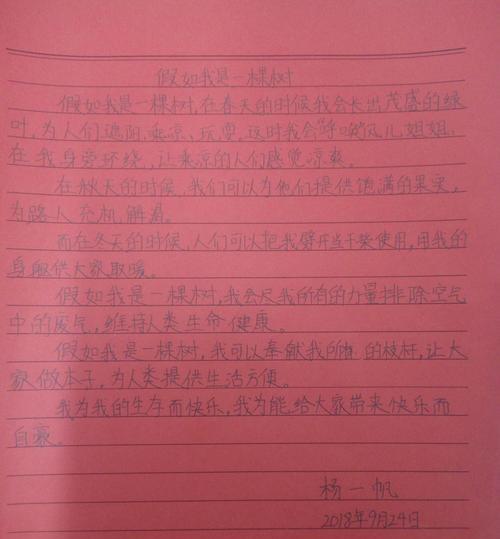 假如我是一棵树
假如我是一棵树,在春天的时候我会长出茂盛的绿
叶,为人们遮阳、乘凉、玩耍。这时我会呼唤风儿姐姐,
在我身旁环绕,让乘凉的人们感觉凉爽。
在秋天的时候,我们可以为他们提供饱满的果实,
为路人充机、解渴。
而在冬天的时候,人们可以把我劈开当干柴使用,用我的
身躯供大家取暖。
假如我是一棵树,我会尽我所有的力量排除空气
中的废气,维持人类生命健康。
假如我是一棵树,我可以奉献我所有的枝杆,让大
家做本子,为人类提供生活方便。
我为我的生存而快乐,我为能给大家带来快乐而
自豪。
杨一帆
2018年9月24日